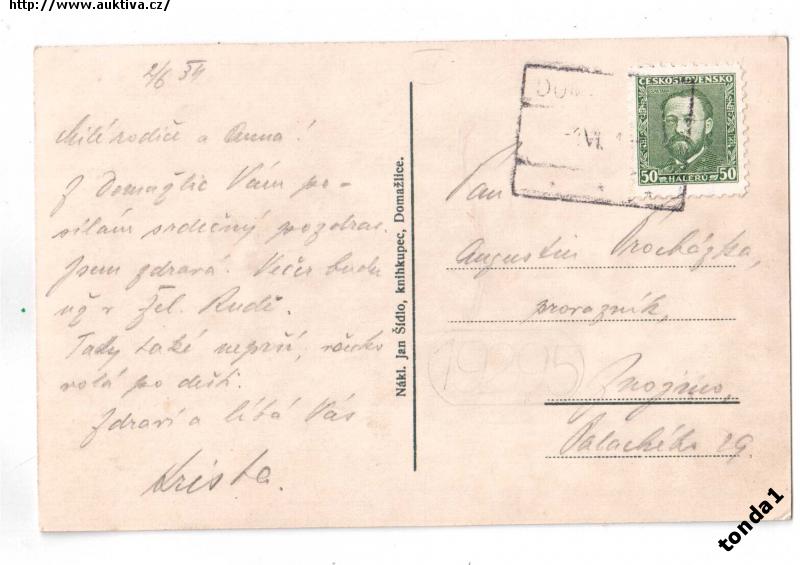 http://www.auktiva.cz/
2/6 34
Milé rodiče a Anna!
Z Domažlic Vám po-
sílám srdečný pozdrav.
Jsem zdravá. Večer budu
už v Žel. Rudě.
Tady také neprší, všecko
volá po dešti.
Zdraví a líbá Vás
Krista.
Nákl. Jan Šídlo, knihkupec, Domažlice.
DOM
ČESKOSLOVENSKO
50 HALÉRŮ 50
Pan
Augustin Procházka,
provazník,
Znojmo,
Palackého 29.
tonda1